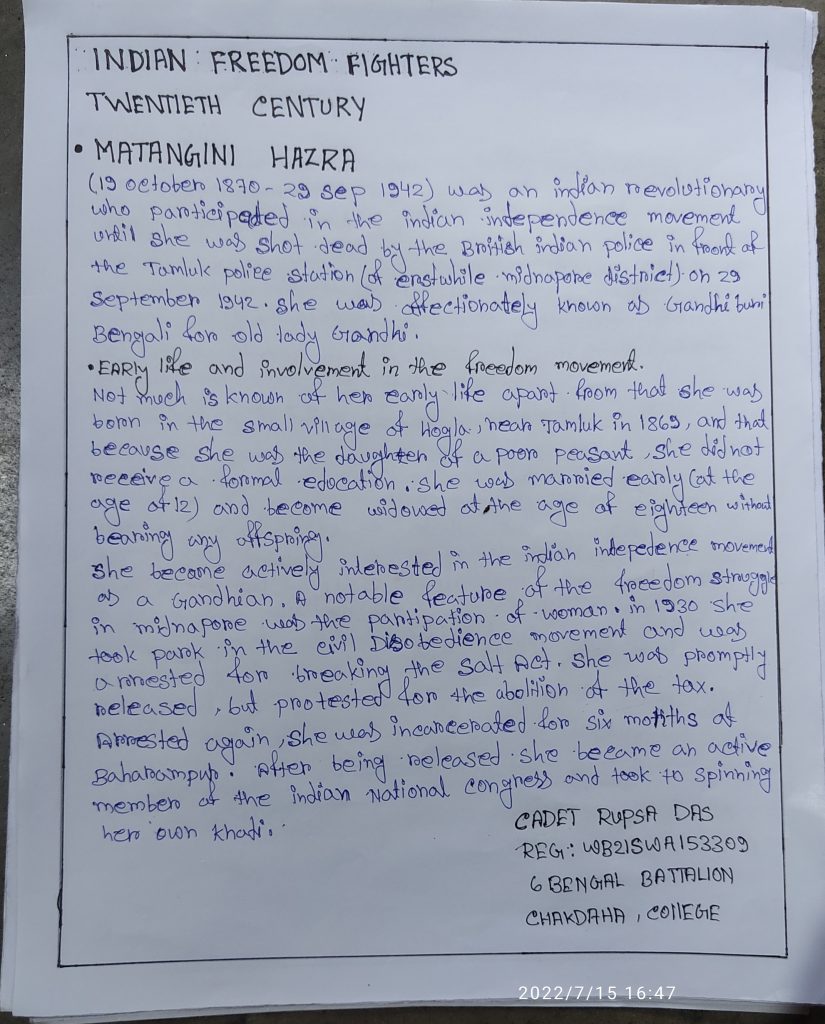 INDIAN FREEDOM FIGHTERS
TWENTIETH CENTURY
• MATANGINI HAZRA
(19 october 1870 - 29 sep 1942) was an indian revolutionary
who participated in the indian independence movement
until she was shot dead by the British indian police in front of
the Tamluk police station (of erstwhile midnapore district) on 29
September 1942. she was affectionately known as Gandhi buri
Bengali for old lady Gandhi.
• EARLy life and involvement in the freedom movement.
Not much is known of her early life apart from that she was
born in the small village of Hogla, near Tamluk in 1869, and that
because she was the daughter of a poor peasant, she did not
receive a formal edocation. she was married early (at the
age of 12) and become widowed at the age of eighteen without
bearing any offspring.
she became actively interested in the indian indepedence movement
as a Gandhian. A notable feature of the freedom struggle
in midnapore was the partipation of woman. in 1930 she
took park in the civil Disobedience movement and was
arrested for breaking the Salt Act. she was promptly
released, but protested for the abolition of the tax.
Arrested again, she was incarcerated for six months at
Baharampur. After being released she became an active
member of the indian National congress and took to spinning
her own khadi.
CADET RUPSA DAS
REG: WB21SWA153309
6 BENGAL BATTALION
CHAKDAHA, COllEGE
2022/7/15 16:47